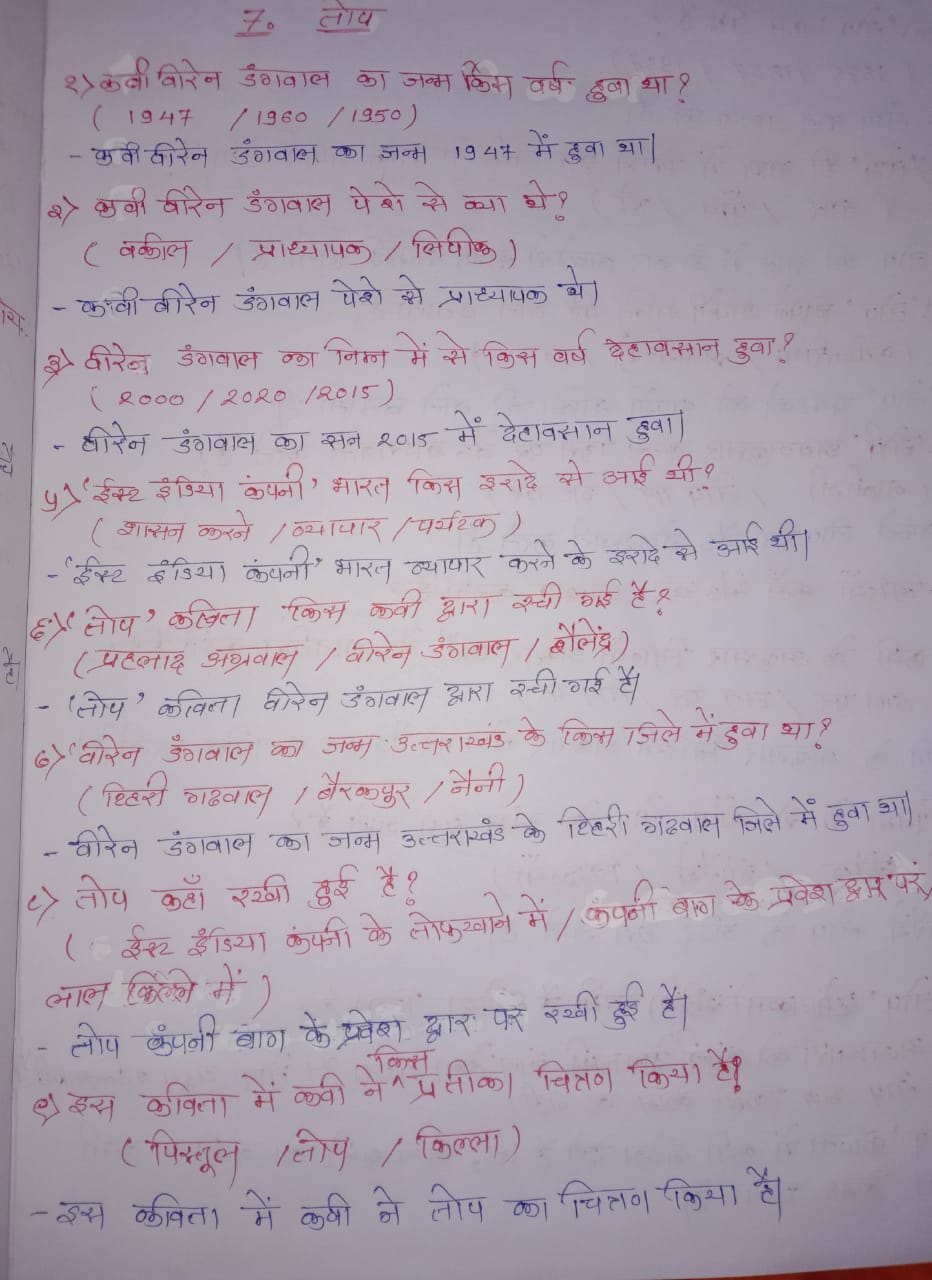 7. तोप
१) कवी वीरेन डंगवाल का जन्म किस वर्ष हुवा था?
( 1947 / 1960 / 1950 )
- कवी वीरेन डंगवाल का जन्म 1947 में हुवा था।
२) कवी वीरेन डंगवाल पेशे से क्या थे?
( वकील / प्राध्यापक / लिपीक )
- कवी वीरेन डंगवाल पेशे से प्राध्यापक थे।
३) वीरेन डंगवाल का निम्न में से किस वर्ष देहावसान हुवा?
( 2000 / 2020 / 2015 )
- वीरेन डंगवाल का सन 2015 में देहावसान हुवा।
५) 'ईस्ट इंडिया कंपनी' भारत किस इरादे से आई थी?
( शासन करने / व्यापार / पर्यटक )
- 'ईस्ट इंडिया कंपनी' भारत व्यापार करने के इरादे से आई थी।
६) 'तोप' कविता किस कवी द्वारा रची गई है?
( प्रहलाद अग्रवाल / वीरेन डंगवाल / शैलेंद्र )
- 'तोप' कविता वीरेन डंगवाल द्वारा रची गई है।
७) वीरेन डंगवाल का जन्म उत्तराखंड के किस जिले में हुवा था?
( टिहरी गढवाल / बैरकपुर / नैनी )
- वीरेन डंगवाल का जन्म उत्तराखंड के टिहरी गढवाल जिले में हुवा था।
८) तोप कहाँ रखी हुई है?
( ईस्ट इंडिया कंपनी के तोफखाने में / कंपनी बाग के प्रवेश द्वार पर,
लाल किल्ले में )
- तोप कंपनी बाग के प्रवेश द्वार पर रखी हुई है।
९) इस कविता में कवी ने किस प्रतीका चित्रण किया है?
( पिस्तूल / तोप / किल्ला )
- इस कविता में कवी ने तोप का चित्रण किया है।